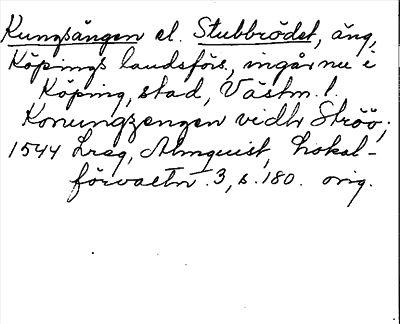 Kungsängen el. Stubbrödet, äng,
Köpings landsförs, ingår nu i
Köping, stad, Västm. l.
Konungzengen vidh Ströö;
1544 Lreg, Almquist, Lokal-
förvaltn. 3, s. 180. orig.